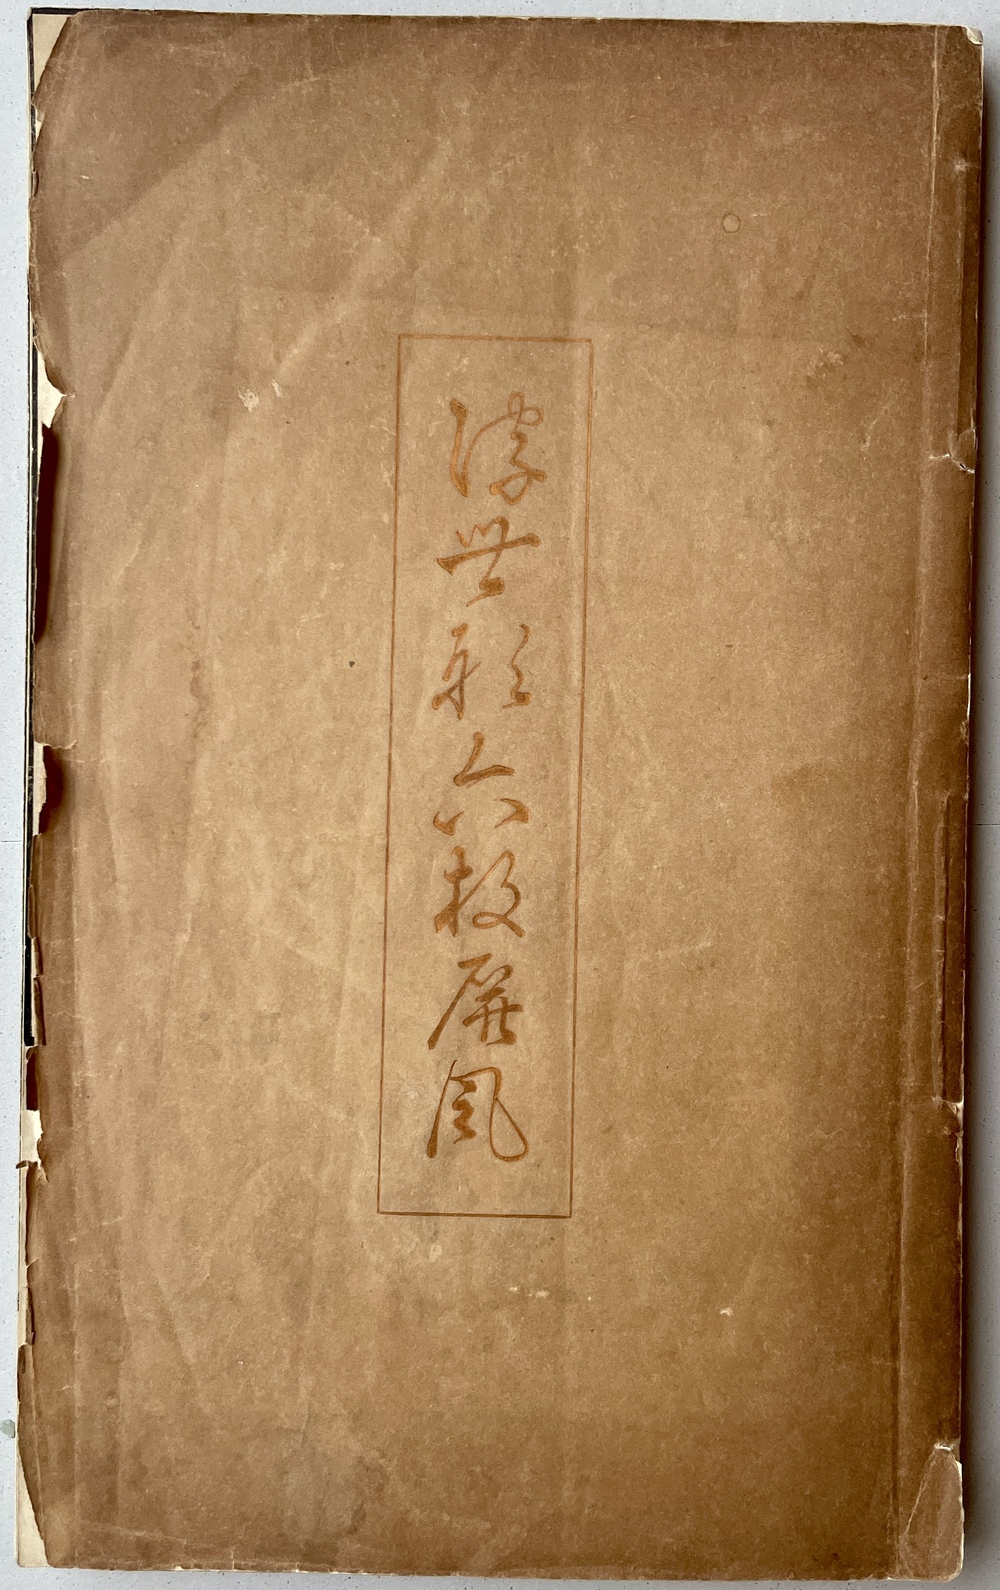 浮世形六枚屏風